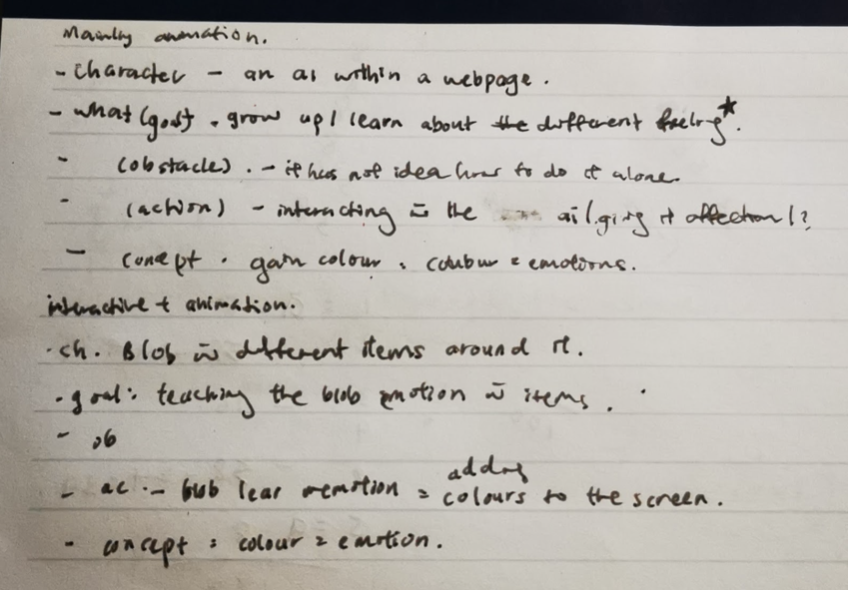 Mainly animation.
- Character - an ai within a webpage.
- what (goal) . grow up / learn about the different feeling*.
- (obstacle) . - it has not idea how to do it alone.
- (action) - interacting w̄ the ai / giving it affection / ?
- concept . gain colour : colour = emotions.
interactive + animation.
. ch. Blob w̄ different items around it.
- goal: teaching the blob emotion w̄ items.
- ob
- ac. - blob lear emotion = adding colours to the screen.
- concept : colour = emotion.